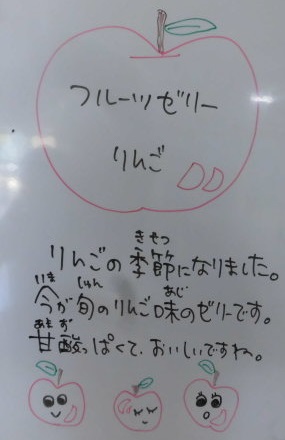 フルーツゼリー
りんご
きせつ
りんごの季節になりました。
いま しゅん あじ
今が旬のりんご味のゼリーです。
あま ず
甘酸っぱくて、おいしいですね。